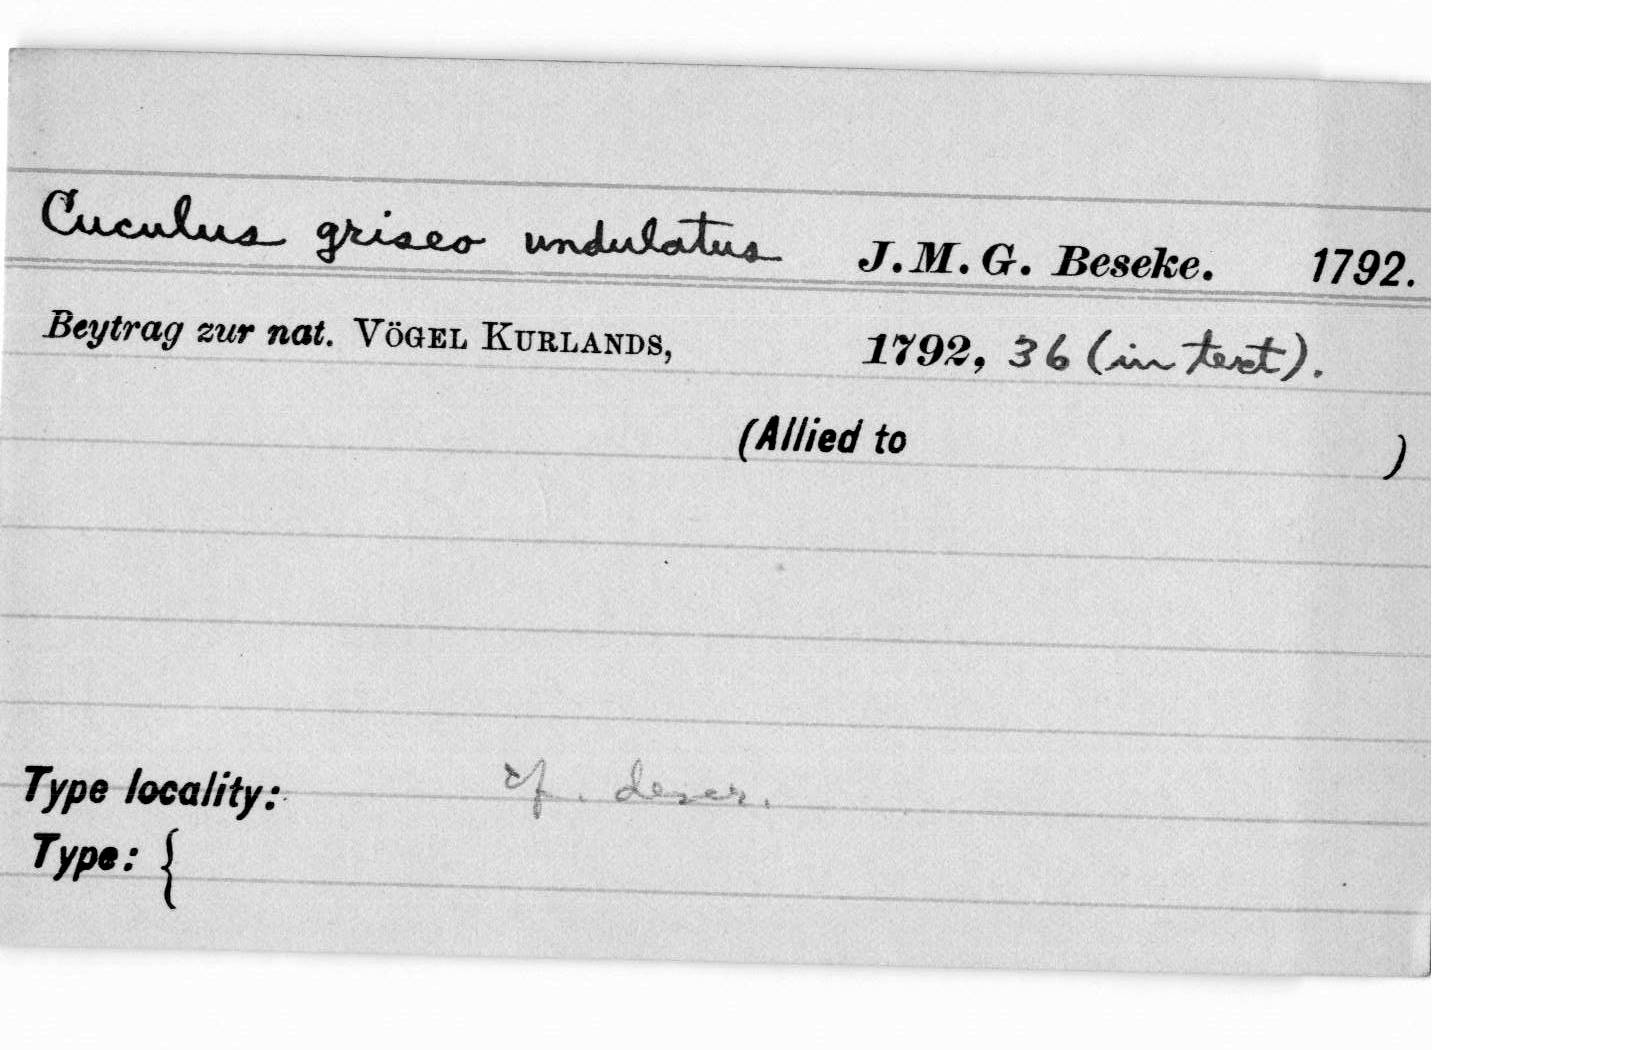 Cuculus griseo undulatus J. M. G. Beseke. 1792.
Beytrag zur nat. VÖGEL KURLANDS, 1792, 36 (in text).
(Allied to )
Type locality: cf. descr.
Type: {